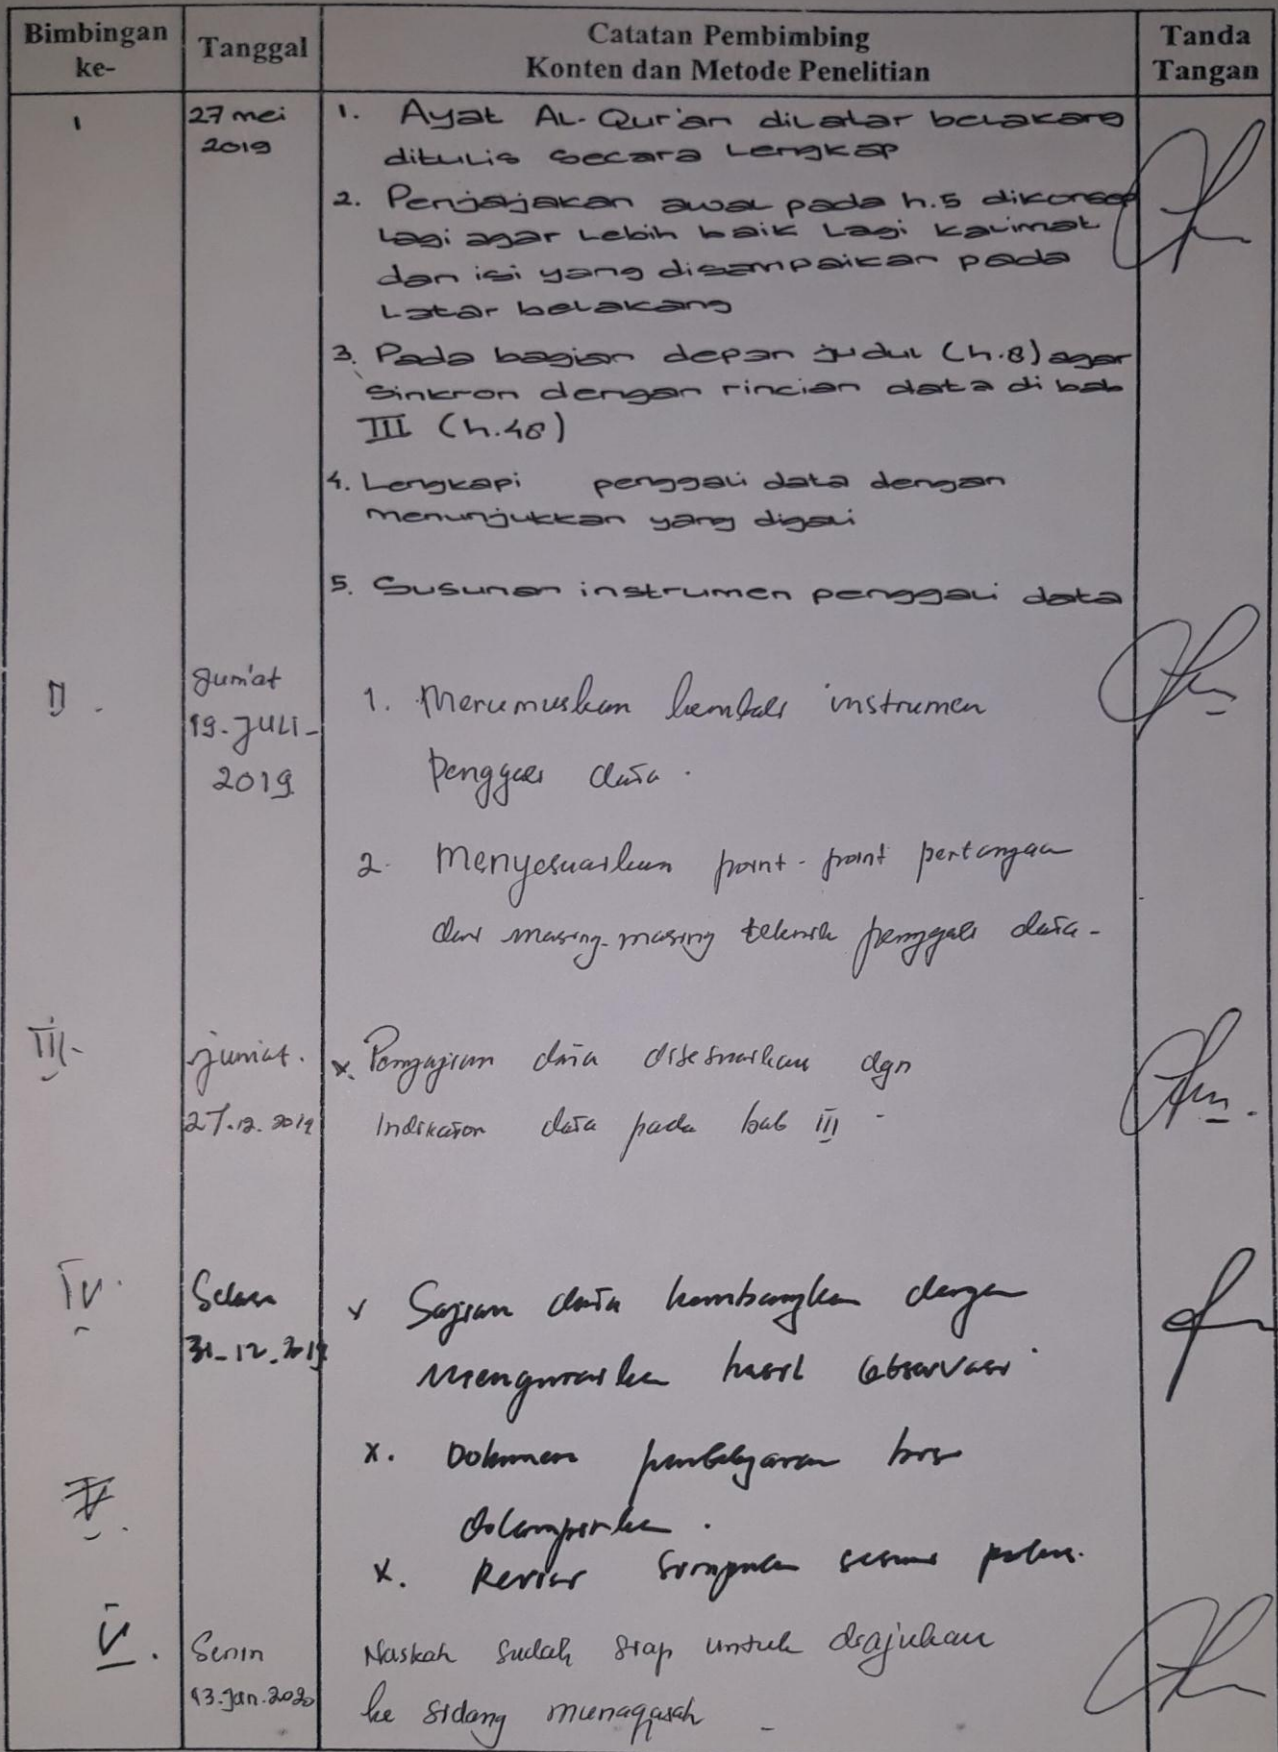 Bimbingan ke-
Tanggal
Catatan Pembimbing
Konten dan Metode Penelitian
Tanda Tangan
1
27 mei
2019
1. Ayat AL-Qur'an dilatar belakang
ditulis secara Lengkap
2. Penjajakan awal pada h.5 dikonsep
Lagi agar Lebih baik Lagi kalimat
dan isi yang disampaikan pada
Latar belakang
3. Pada bagian depan judul (h.8) agar
sinkron dengan rincian data di bab
III (h.46)
4. Lengkapi penggali data dengan
menunjukkan yang digali
5. Susunan instrumen penggali data
II.
Jum'at
19-JULI-
2019
1. Merumuskan kembali instrumen
penggali data.
2. Menyesuaikan point-point pertanyaan
dari masing-masing teknik penggali data-
III-
Jum'at.
27.12.2019
x. Penyajian data disesuaikan dgn
Indikator data pada bab III
IV.
Selasa
31-12.2019
x Sajian data kembangkan dengan
menguraikan hasil observasi
x. Dokumen pembelajaran
dilampirkan.
x. Revisi simpulan sesuai
V.
V.
Senin
13.Jan.2020
Naskah sudah siap untuk diajukan
ke sidang munaqasah -